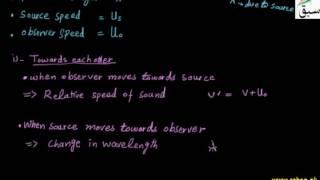 λ → due to source
سبق
• Source speed = Us
• observer speed = Uo
i)- Towards eachother
• when observer moves towards source
=> Relative speed of sound v' = v+Uo
• When source moves towards observer
=> Change in wavelength